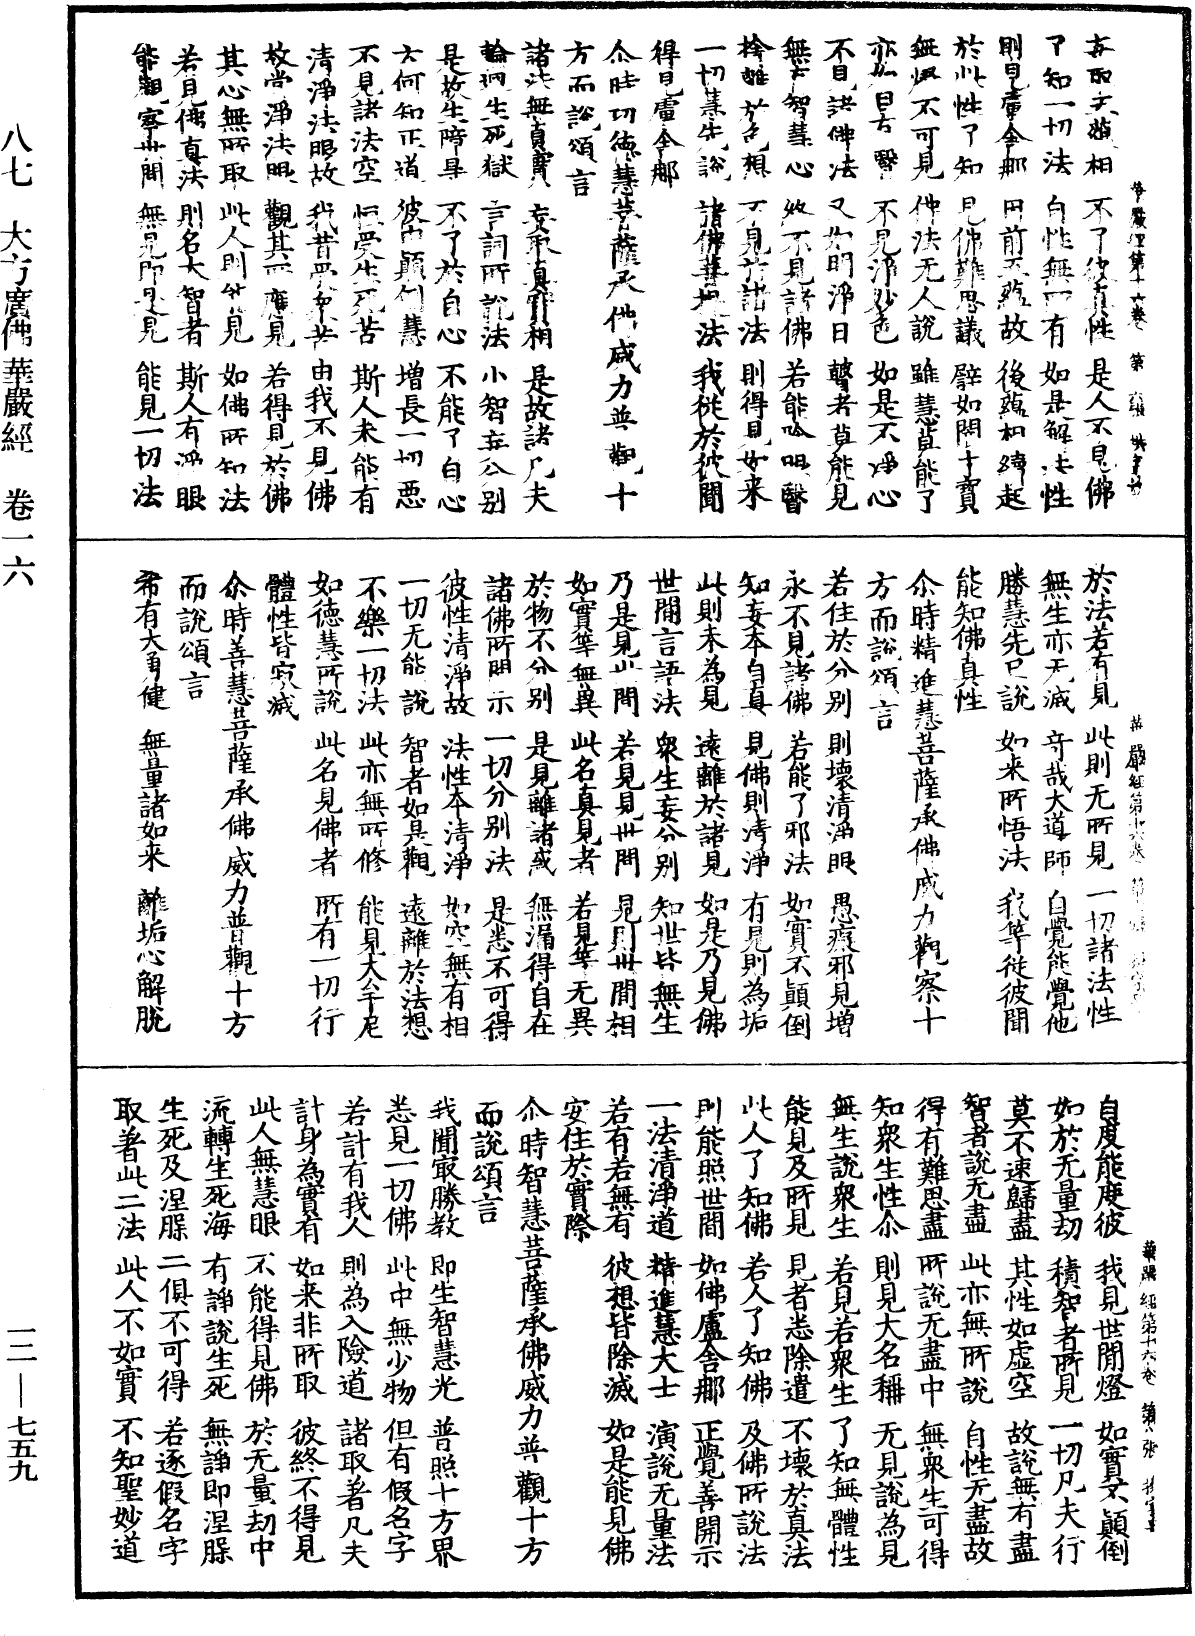 妄取文[?]相　不了彼真性　是人不見佛
了知一切法　自性無所有　如是解法性
則見盧舍那　因前五藴故　後藴相續起
於此性了知　見佛難思議　譬如闇中寶
無燈不可見　佛法无人說　雖慧莫能了
亦如目有瞖　不見淨妙色　如是不淨心
不見諸佛法　又如明淨日　瞽者莫能見
無有智慧心　終不見諸佛　若能除眼瞖
捨離於色想　不見於諸法　則得見如来
一切慧先說　諸佛菩提法　我從於彼聞
得見盧舍那
尒時功德慧菩薩承佛威力普觀十
方而說頌言
諸法無真實　妄取真實相　是故諸凡夫
輪迴生死獄　言詞所說法　小智妄分別
是故生障㝵　不了於自心　不能了自心
云何知正道　彼由顛倒慧　增長一切惡
不見諸法空　恒受生死苦　斯人未能有
清淨法眼故　我昔受衆苦　由我不見佛
故當淨法眼　觀其所應見　若得見於佛
其心無所取　此人則能見　如佛所知法
若見佛真法　則名大智者　斯人有淨眼
能觀察世間　無見即是見　能見一切法
於法若有見　此則无所見　一切諸法性
無生亦无滅　竒哉大道師　自覺能覺他
勝慧先已說　如来所悟法　我等從彼聞
能知佛真性
尒時精進慧菩薩承佛威力觀察十
方而說頌言
若住於分別　則壞清淨眼　愚癡邪見增
永不見諸佛　若能了邪法　如實不顛倒
知妄本自真　見佛則清淨　有見則為垢
此則未為見　遠離於諸見　如是乃見佛
世間言語法　衆生妄分別　知世皆無生
乃是見世間　若見見世間　見則世間相
如實等無異　此名真見者　若見等无異
於物不分別　是見離諸惑　無漏得自在
諸佛所開示　一切分別法　是悉不可得
彼性清淨故　法性本清淨　如空無有相
一切无能說　智者如是觀　遠離於法想
不樂一切法　此亦無所修　能見大牟尼
如德慧所說　此名見佛者　所有一切行
體性皆寂滅
尒時善慧菩薩承佛威力普觀十方
而說頌言
希有大勇健　無量諸如来　離垢心解脫
自度能度彼　我見世間燈　如實不顛倒
如於无量劫　積智者所見　一切凡夫行
莫不速歸盡　其性如虛空　故說無有盡
智者說无盡　此亦無所說　自性无盡故
得有難思盡　所說无盡中　無衆生可得
知衆生性尒　則見大名稱　无見說為見
無生說衆生　若見若衆生　了知無體性
能見及所見　見者悉除遣　不壞於真法
此人了知佛　若人了知佛　及佛所說法
則能照世間　如佛盧舍那　正覺善開示
一法清淨道　精進慧大士　演說无量法
若有若無有　彼想皆除滅　如是能見佛
安住於實際
尒時智慧菩薩承佛威力普觀十方
而說頌言
我聞㝡勝教　即生智慧光　普照十方界
悉見一切佛　此中無少物　但有假名字
若計有我人　則為入險道　諸取著凡夫
計身為實有　如来非所取　彼終不得見
此人無慧眼　不能得見佛　於无量劫中
流轉生死海　有諍說生死　無諍即涅槃
生死及涅槃　二俱不可得　若逐假名字
取著此二法　此人不如實　不知聖妙道
八七　大方廣佛華嚴經　卷一六
一二—七五九